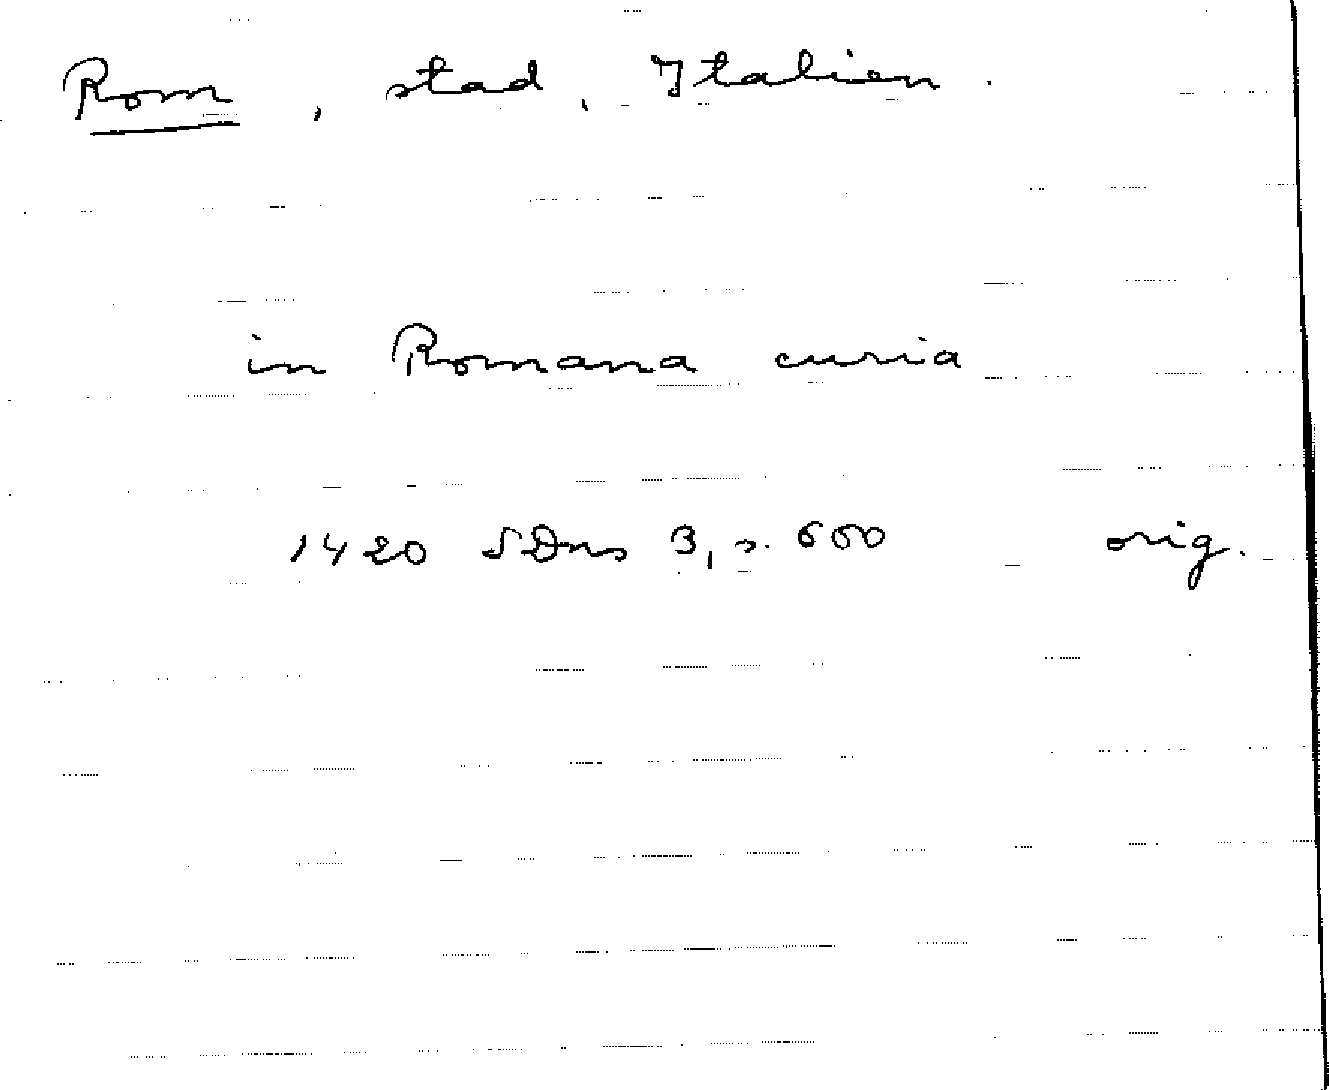 Rom, stad, Italien.
in Romana curia
1420 SDns 3, s. 660 orig.